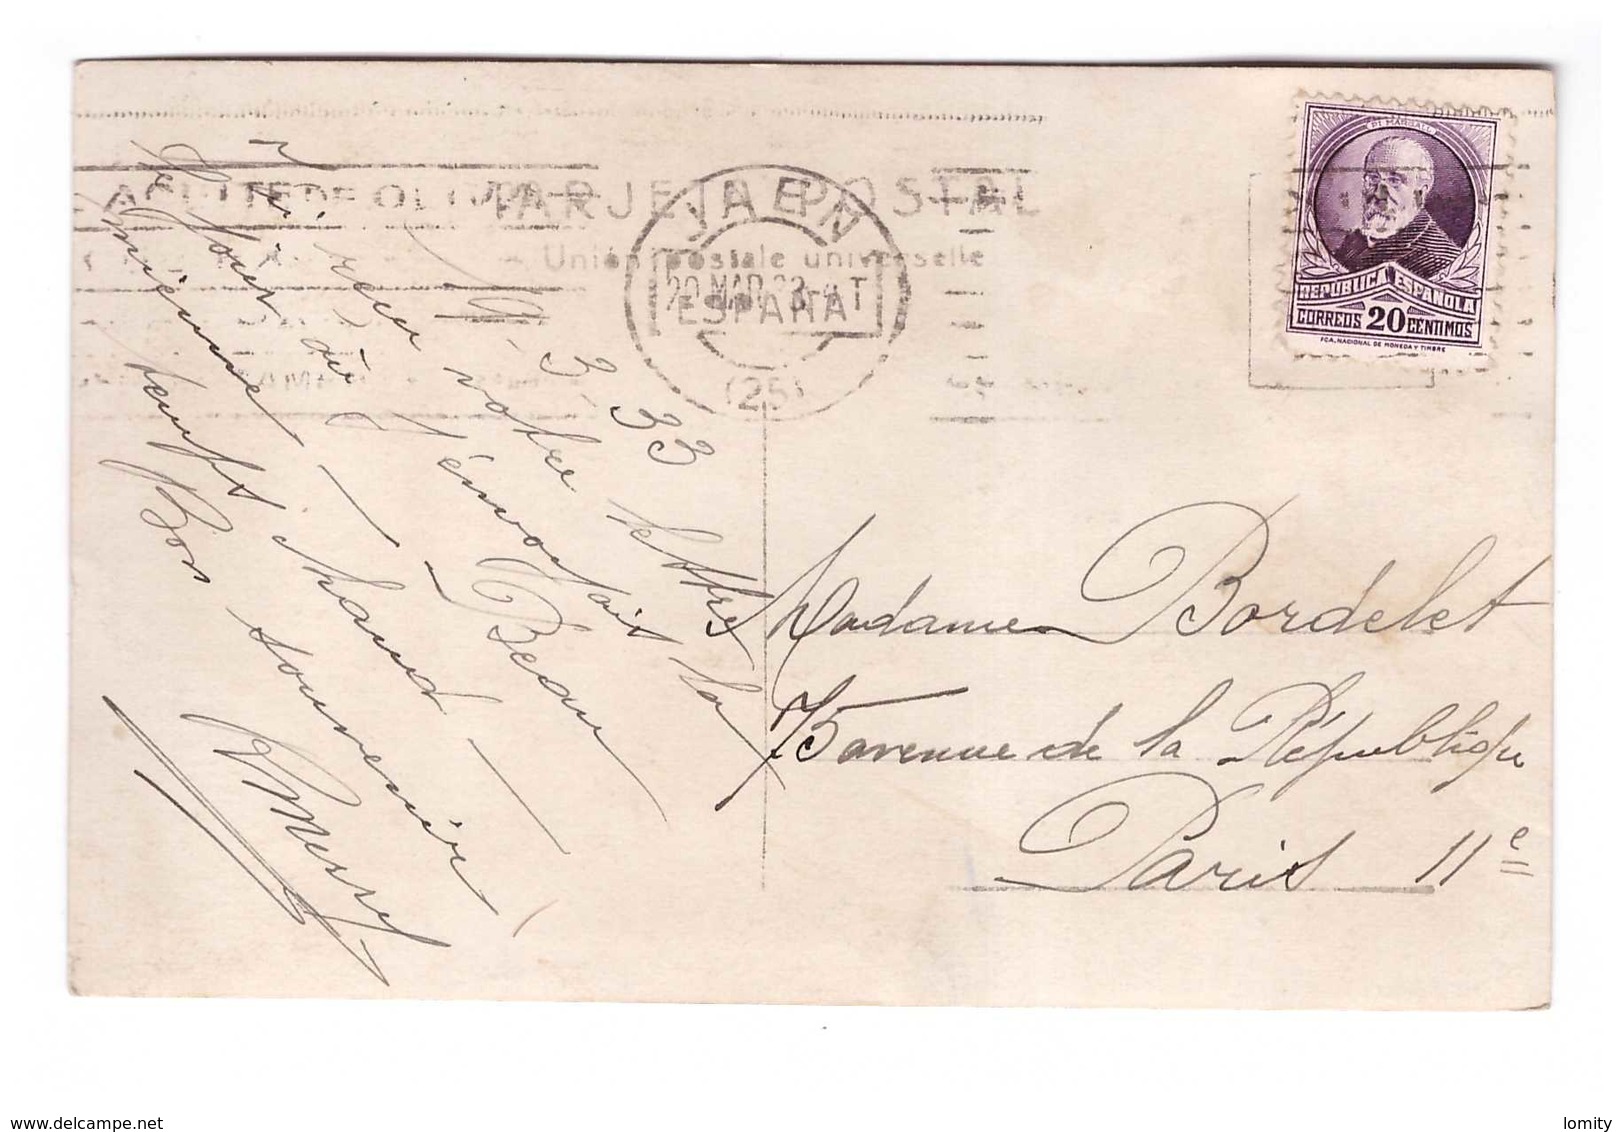 TARJETA POSTAL
Unión postale universelle
ACEITE DE OLIVA
JAEN
20 MAR 33
ESPAÑA
(25)
PI MARGALL
REPUBLICA ESPAÑOLA
CORREOS 20 CENTIMOS
FCA. NACIONAL DE MONEDA Y TIMBRE
19-3-33
J'ai reçu votre lettre
le soir où j'envoyais la
mienne - Beau
temps chaud -
Bon souvenir
Madame Bordelet
75 avenue de la République
Paris 11e
delcampe.net
lomity